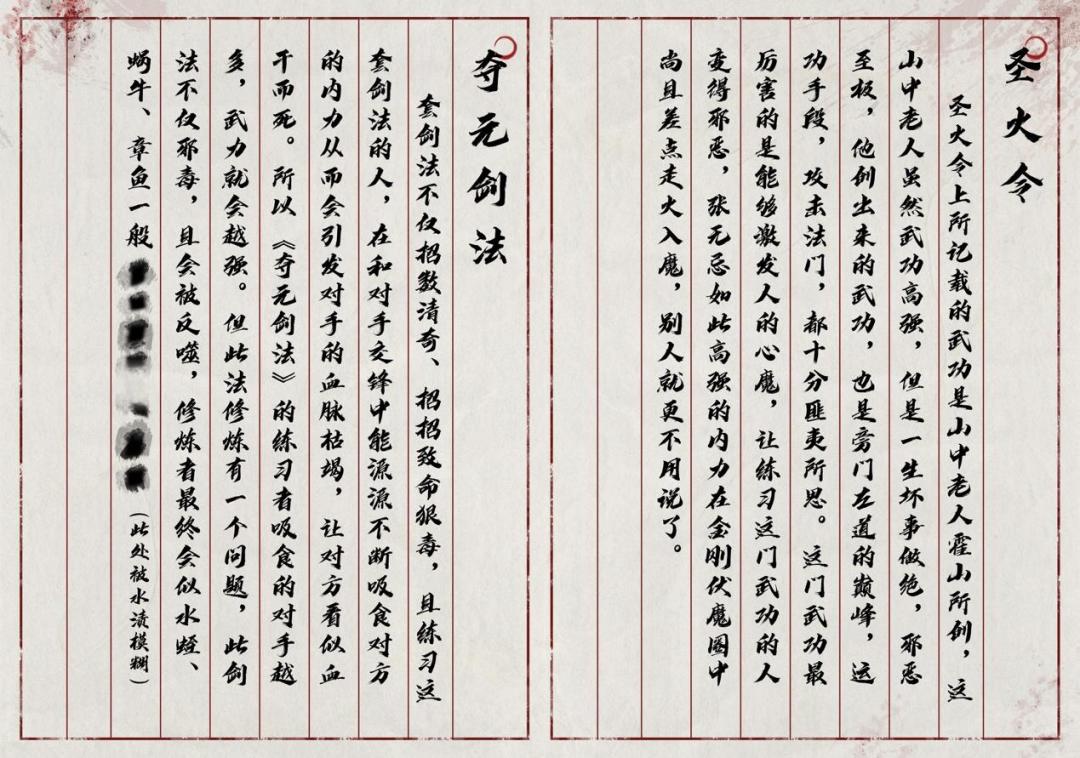 圣火令
圣火令上所记载的武功是山中老人霍山所创，这
山中老人虽然武功高强，但是一生坏事做绝，邪恶
至极，他创出来的武功，也是旁门左道的巅峰，运
功手段，攻击法门，都十分匪夷所思。这门武功最
厉害的是能够激发人的心魔，让练习这门武功的人
变得邪恶，张无忌如此高强的内力在金刚伏魔圈中
尚且差点走火入魔，别人就更不用说了。
夺元剑法
套剑法不仅招数清奇、招招致命狠毒，且练习这
套剑法的人，在和对手交锋中能源源不断吸食对方
的内力从而会引发对手的血脉枯竭，让对方看似血
干而死。所以《夺元剑法》的练习者吸食的对手越
多，武力就会越强。但此法修炼有一个问题，此剑
法不仅邪毒，且会被反噬，修炼者最终会似水蛭、
蜗牛、章鱼一般
（此处被水渍模糊）